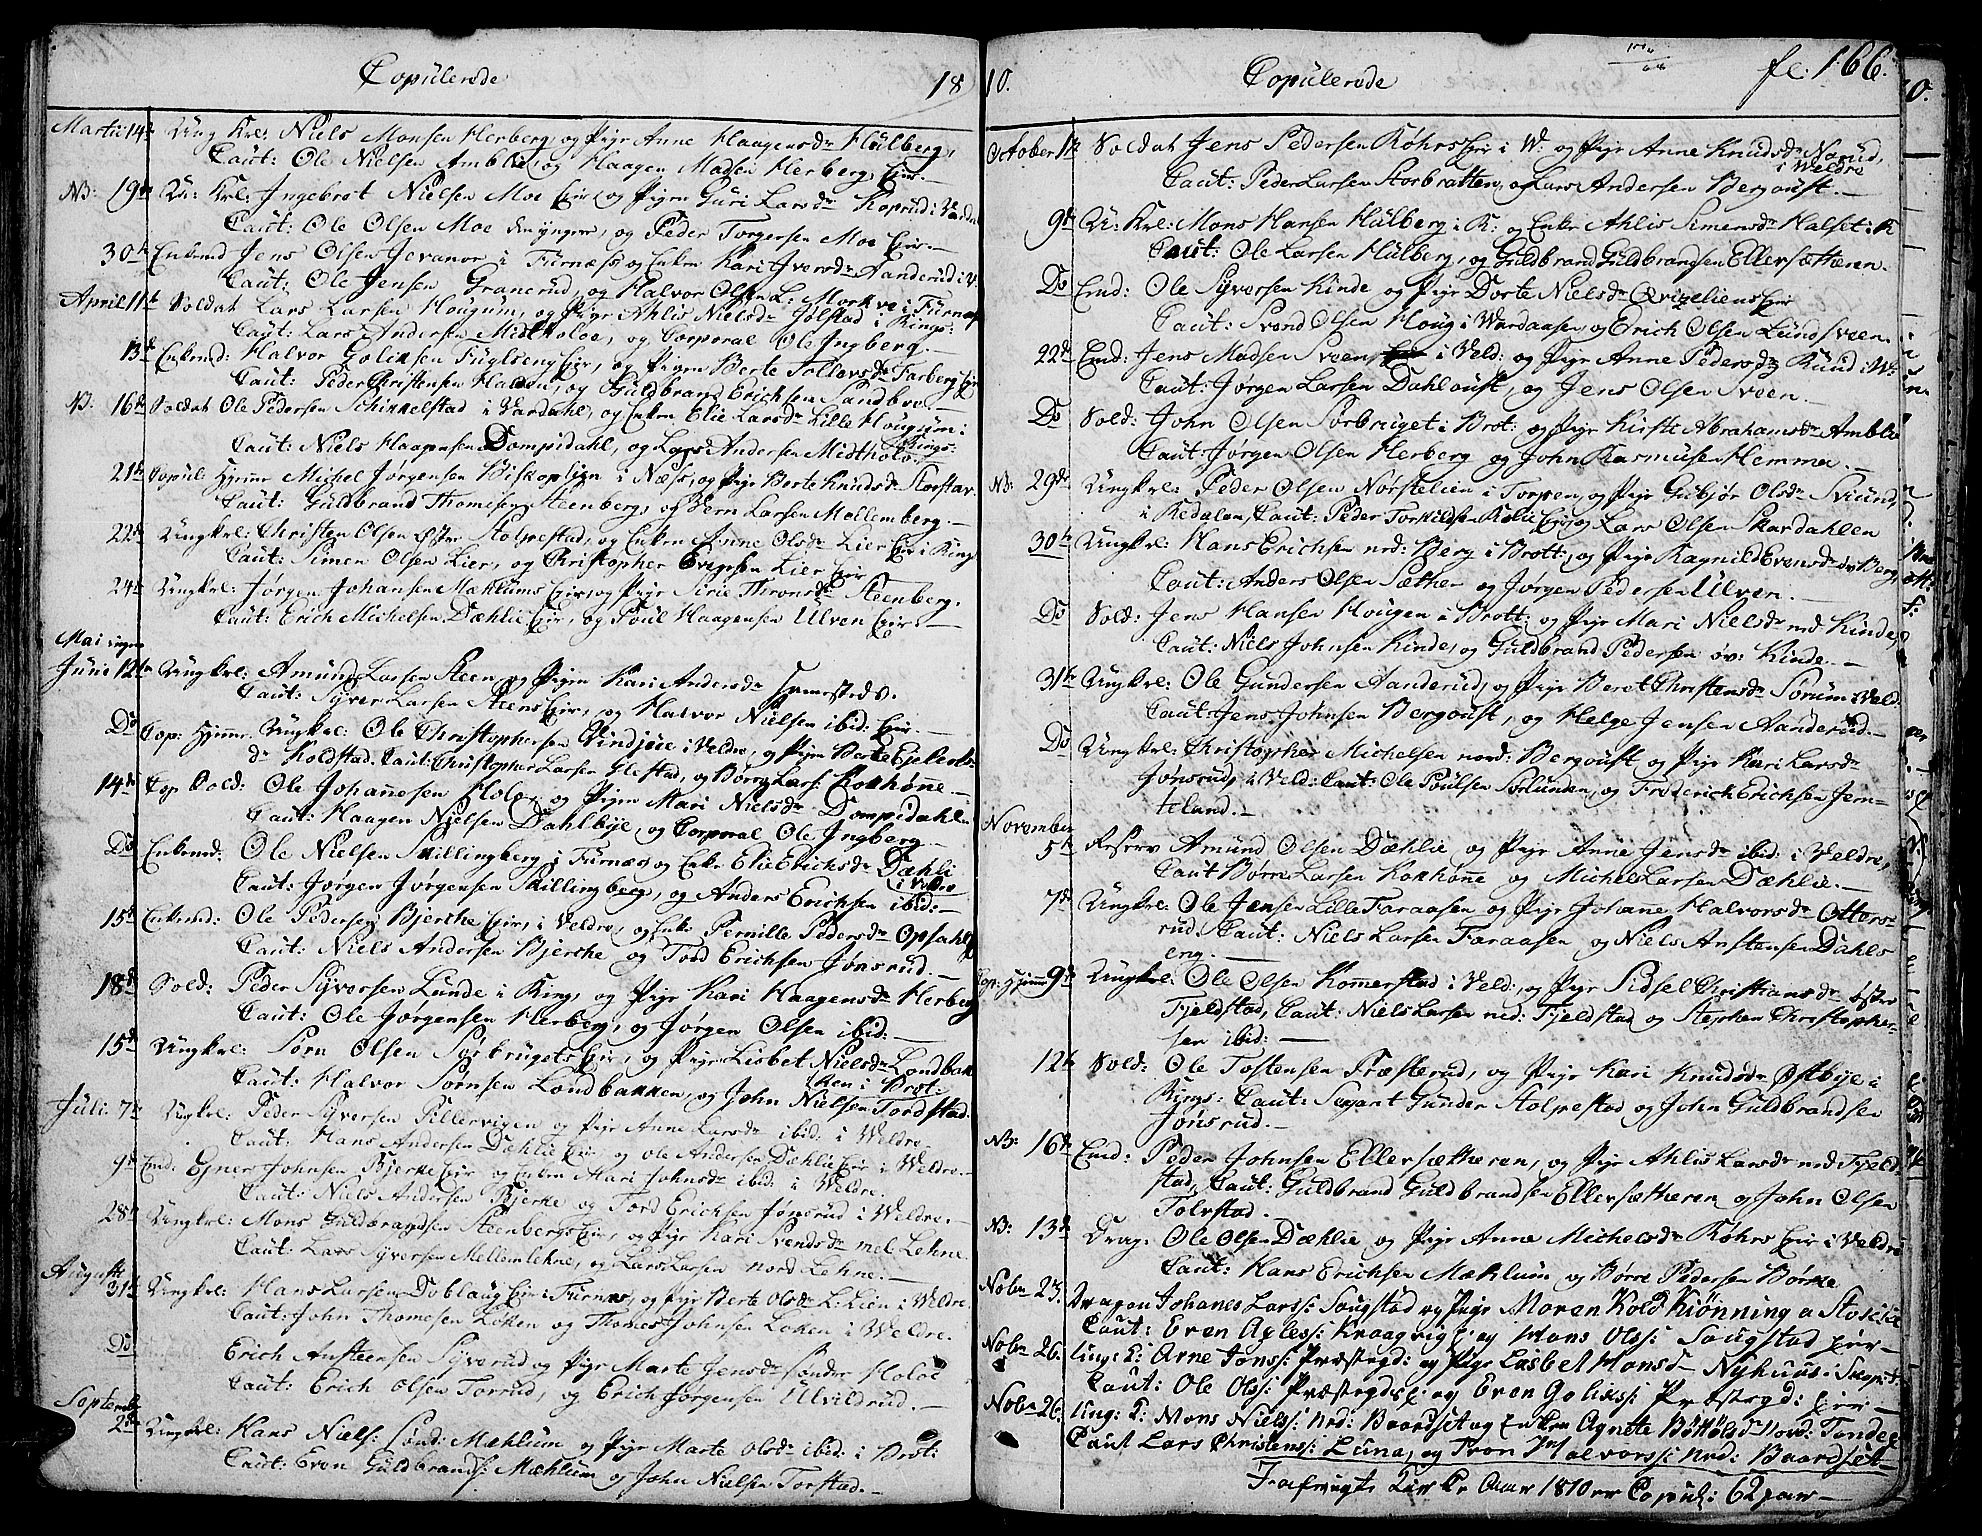 Copulerede 18
Martii 14de Ung Krl: Niels Monsen Herberg, og Pige Anne Haagensdr Hulberg,
Caut: Ole Nielsen Amblie, og Haagen Madsen Herberg, Eier.
NB: 19de U: Krl: Ingebret Nielsen Moe Eier, og Pigen Guri Larsdr Koprud i
Caut: Ole Olsen Moe den yngere, og Peder Torgersen Moe Eier.—
30te Enkemd Jens Olsen Jevanor i Furnæss og Enken Kari Iversdr Aanderud i V.
Caut: Ole Jensen Granerud, og Halvor Olsen L: Morkve i Furnæs
April 11te Soldat Lars Larsen Hougum, og Pige Ahlis Nielsdr Jølstad i Rings:
Caut: Lars Andersen Midtholoe, og Corporal Ole Ingberg.—
13de Enkemd: Halvor Goliksen Fuglseng Eier, og Pigen Berte Tollevsdr Farberg Eie
Caut: Peder Christensen Halden, og Guldbrand Erichsen Sandboe.—
N: 16de Soldat Ole Pedersen Schinkelstad i Vardahl, og Enken Elie Larsdr Lille Hougum i
Rings:
Caut: Niels Haagensen Dompidahl, og Lars Andersen Midtholoe.
21de Copul: Hjemme Michel Jørgensen Biskoplien i Næss, og Pige Berte Knudsdr Storstav
Caut: Guldbrand Thomesen Steenberg, og Bern Larsen Mellemberg.—
22de Ungkrl: Christen Olsen Stolpestad, og Enken Anne Olsdr Lier Eie i Ring
Caut: Simen Olsen Lier, og Christopher Lier Eier
24de Ungkrl: Jørgen Johansen Mæhlums Eier, og Pige Sirie Thronsdr Steenberg.
Caut: Erich Michelsen Dæhlie Eier, og Poul Haagensen Ulven Eier.—
Mai ingen
Junii 12te Ungkrl: Amund Larsen Steen og Pigen Kari Andersdr
Caut: Syver Larsen Steens Eier, og Halvor Nielsen ibid: Eier.
Do Cop: Hjemme Ungkrl: Ole Christophersen Windjue i Veldre, og Pigen Berte Ejlerts-
dr Koldstad. Caut: Christopher Larsen Glestad, og Børre Lars: Kokhønne.—
14de Cop Sold: Ole Johannesen Hole, og Pigen Mari Nielsdr Dompidahl
Caut: Haagen Nielsen Dahlbye, og Corporal Ole Ingberg.
Do Enkemd: Ole Nielsen Skillingberg i Furnæs og Enke Elie Erichsdr Dæhli
i Veldre
Caut: Jørgen Jørgensen Skillingberg, og Anders Erichsen ibid:—
15de Enkemd: Ole Pedersen Bjerche Eier, i Veldre, og Enke Pernille Pedersdr Opsahl
Caut: Niels Andersen Bjerche og Tord Erichsen Jønsrud.—
18de Sold: Peder Syversen Lunde i Ring, og Pige Kari Haagensdr Herberg
Caut: Ole Jørgensen Herberg, og Jørgen Olsen ibid:—
15de Ungkrl: Sørn Olsen Sørbrugets Eier, og Pige Lisbet Nielsdr Londbak
ken i Brot:
Caut: Halvor Sørnsen Londbakken, og John Nielsen Tordstad.
Juli 7de Ungkrl: Peder Syversen Pillervigen og Pige Anne Larsdr ibid: i Weldre.
Caut: Hans Andersen Dæhlie Eier, og Ole Andersen Dæhlie Eier i Weldre.—
9de Emd: Egner Johnsen Bjerke Eier og Enken Mari Johnsdr ibid: i Weldre.
Caut: Niels Andersen Bjerke og Tord Erichsen Jønsrud i Weldre.—
28de Ungkrl: Mons Guldbrandsen Steenbergs Eier, og Pige Kari Svendsdr mel Lehne.
Caut: Lars Syversen Mellemlehne, og Lars Larsen nord Lehne.—
Augusti 31te Ungkrl: Hans Larsen Doblaug Eier i Furnæs, og Pige Berte Olsdr L: Lien i Weldre.
Caut: John Thomesen Løken og Thomes Johnsen Løken i Weldre.
Do Erich Austeensen Syverud og Pige Marte Jensdr Sønder Holoe
Caut: Erich Olsen Torrud, og Erich Jørgensen Ulvildrud.—
September 2den Ungkrl: Hans Niels: Sønd: Mæhlum og Pige Marte Olsdr ibid: i Brot:
Caut: Even Guldbrands: Mæhlum og John Nielsen Torstad.—
10. Copulerede fl: 166.
October 1te Soldat Jens Pedersen Køhrs Eier i W: og Pige Anne Knudsdr Norud,
i Weldre
Caut: Peder Larsen Storbratten, og Lars Andersen Bergoust.—
9de U: Krl: Mons Hansen Hulberg i R: og Enke Ahlis Simensdr Halset i R
Caut: Ole Larsen Hulberg, og Guldbrand Guldbrandsen Ellersætheren.
Do Emd: Ole Syversen Kinde og Pige Dorte Nielsdr Qvigeliens Eier
Caut: Svend Olsen Houg i Wardaasen, og Erich Olsen Lundsveen.
22de Emd: Jens Madsen Sveen i Veld: og Pige Anne Pedersdr Ruud i W:
Caut: Jørgen Larsen Dahloust, og Jens Olsen Sveen.
Do Sold: John Olsen Sørbruget i Brot: og Pige Kirsti Abrahamsdr Amblie
Caut: Jørgen Olsen Herberg og John Rasmusen Hemma.—
NB: 29de Ungkrl: Peder Olsen Nørstelien i Torpen, og Pige Gubjør Olsdr Sviund,
i Redalen, Caut: Peder Torkildsen Kolie Eier, og Lars Olsen Skardahlen
30te Ungkrl: Hans Erichsen ned: Berg i Brott: og Pige Ragnild Evensdr Berg,
Caut: Anders Olsen Sæther og Jørgen Pedersen Ulven.—
Do Sold: Jens Hansen Hougen i Brott: og Pige Mari Nielsdr ned Kinde,
Caut: Niels Johnsen Kinde, og Guldbrand Pedersen øv: Kinde.—
31te Ungkrl: Ole Gundersen Aanderud, og Pige Beret Christensdr Sørum i Veld.
Caut: Jens Johnsen Bergoust, og Helge Jensen Aanderud.—
Do Ungkrl: Christopher Michelsen nord: Bergoust og Pige Kari Larsdr
Jønsrud, i Veld: Caut: Ole Poulsen Sørlunden, og Frederich Erichsen Jern-
teland.—
November 5te Reserv Amund Olsen Dæhlie og Pige Anne Jensdr ibid: i Veldre,
Caut Børre Larsen Kokhønne og Michel Larsen Dæhlie.—
7de Ungkrl: Ole Jensen Lille Faraasen og Pige Johanne Halvorsdr Otters-
rud. Caut: Niels Larsen Faraasen og Niels Anstensen Dahls
eng.—
Cop: Hjemme 9de Ungkrl: Ole Olsen Kommerstad i Veld:, og Pige Sidsel Christiansdr østre
Fjeldstad, Caut: Niels Larsen ned: Fjeldstad og Stephen Christophe-
sen ibid:—
12te Sold: Ole Tostensen Præsterud, og Pige Kari Knudsdr Østbye i
Rings: Caut: Sergant Gunder Stolpestad og John Guldbrandsen
Jønsrud.—
NB: 16de Emd: Peder Johnsen Ellersætheren, og Pige Ahlis Larsdr ned Fjeld
stad, Caut: Guldbrand Guldbrandsen Ellersætheren og John Olsen
Tolvstad.—
N: 13de Drag: Ole Olsen Dæhlie og Pige Anne Michelsdr Køhrs Eier i Veldre
Caut: Hans Erichsen Mæhlum og Børre Pedersen Børke
Nobr 23. Dragon Johanes Larss: Saugstad og Pige Maren Kold Kiønning a
Caut: Even Axless: Kraagvig E: og Hans Olss: Saugstad Eier—
Nobr 26. Ung: K: Arne Jonss: Præstegd: og Pige Lisbet Hansd— Nyhuus i
Caut: Ole Olss: Præstegds E: og Even Goliks: Præstegd: Eier—
Nobr 26. Ung: K: Mons Nielss: Nrd: Baardset og Enken Agnete Nord: Tande
Caut Lars Christenss: Luna, og Tron Halvorss: Nrd: Baardset—
Aar 1810 er Copul: 62 par—